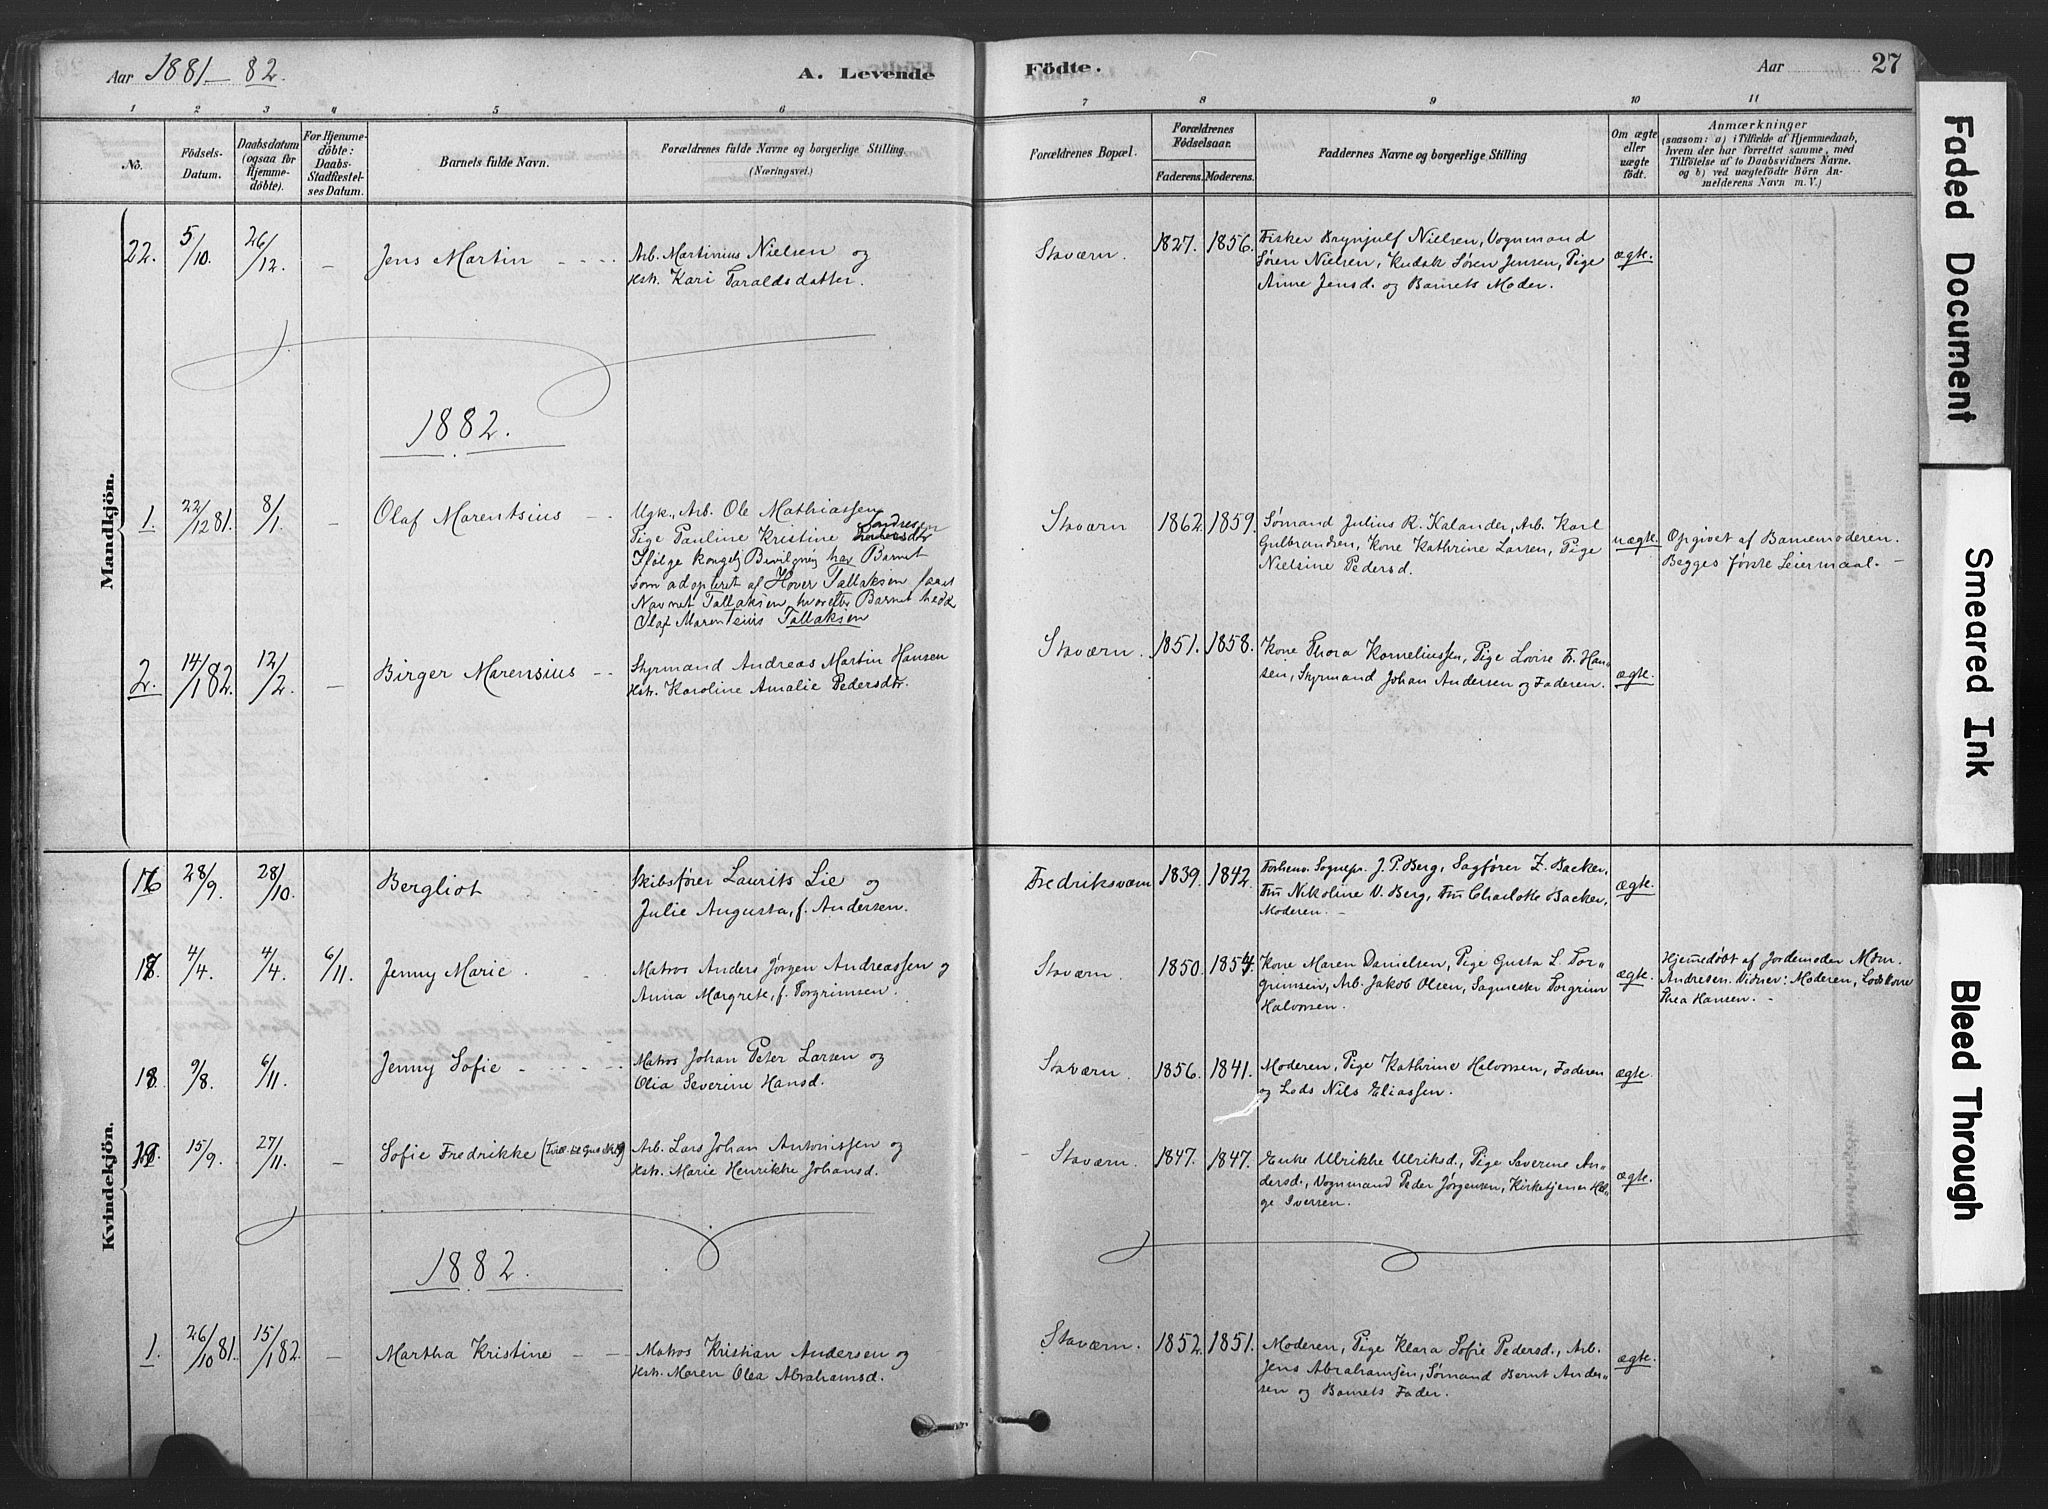 Aar 1881-82.
A. Levende
Födte.
Aar
27
1 2 3 4 5 6 7 8 9 10 11
No.
Födsels-Datum.
Daabsdatum (ogsaa for Hjemmedöbte).
For Hjemmedöbte: Daabs-Stadfæstelses Datum.
Barnets fulde Navn.
Forældrenes fulde Navne og borgerlige Stilling (Næringsvei.)
Forældrenes Bopæl.
Forældrenes Födselsaar.
Faderens. Moderens.
Faddernes Navne og borgerlige Stilling
Om ægte eller uægte födt.
Anmærkninger
(saasom: a) i Tilfælde af Hjemmedaab,
hvem der har forrettet samme, med
Tilföielse af to Daabsvidners Navne.
og b) ved uægtefödte Börn An-
melderens Navn m. V.)
Mandkjön.
22. 5/10. 26/12. - Jens Martin
Arb. Martinius Nielsen og
Hstr. Kari Taraldsdatter.
Staværn. 1827. 1856.
Fisker Brynjulf Nielsen, Vognmand
Søren Nielsen, Kudsk Søren Jensen, Pige
Anne Jensd. og Barnets Moder.
ægte.
1882.
1. 22/12 81. 8/1. - Olaf Marentsius
Ugk. Arb. Ole Mathiassen
Pige Pauline Kristine
Ifølge kongelig Bevilgning har Barnet
som adopteret af Hover Tallaksen faaet
Navnet Tallaksen, hvorefter Barnet hedder
Olaf Marentsius Tallaksen
Staværn 1862. 1859.
Sømand Julius R. Kalander, Arb. Karl
Gulbrandsen, Kone Kathrine Larsen, Pige
Nielsine Pedersd.
uægte.
Opgivet af Barnemoderen.
Begges første Leiermaal. -
2. 14/1 82. 12/2. - Birger Marensius
Styrmand Andreas Martin Hansen
Hstr. Karoline Amalie Pedersdtr.
Staværn. 1851. 1858.
Kone Thora Korneliussen, Pige Lovise Fr. Han-
sen, Styrmand Johan Andersen og Faderen.
ægte.
Kvindekjön.
16 28/9. 28/10. Bergliot
Skibsfører Laurits Lie og
Julie Augusta, f. Andersen.
Fredriksværn 1839. 1842.
Forhenv. Sognepr. J. P. Berg, Sagfører Z. Backer,
Fru Nikoline V. Berg, Fru Charlotte Backer,
Moderen. -
ægte.
17 4/4. 4/4. 6/11. Jenny Marie.
Matros Anders Jørgen Andreassen og
Anna Margrete, f. Torgrimsen.
Staværn 1850. 1854.
Kone Maren Danielsen, Pige Gusta L. Tor-
grimsen, Arb. Jakob Olsen, Sagmester Torgrim
Halvorsen.
ægte.
Hjemedøbt af Jordemoder Mdm.
Andresen. Vidner: Moderen, Lodskone
Thea Hansen. -
18 9/8. 6/11. Jenny Sofie
Matros Johan Peter Larsen og
Olia Severine Hansd.
Staværn. 1856. 1841.
Moderen, Pige Kathrine Halvorsen, Faderen
og Lods Nils Eliassen.
ægte.
19. 15/9. 27/11. - Sofie Fredrikke
Arb. Lars Johan Antonissen og
Hstr. Marie Henrikke Johansd.
Staværn. 1847. 1847.
Enke Ulrikke Ulriksd., Pige Severine An-
dersd., Vognmand Peder Jørgensen, Kirketjener Hel-
ge Iversen.
ægte.
1882.
1. 26/10 81. 15/1 82. - Martha Kristine
Matros Kristian Andersen og
Hstr. Maren Olea Abrahamsd.
Staværn. 1852. 1851.
Moderen, Pige Klara Sofie Pedersd., Arb.
Jens Abrahamsen, Sømand Bernt Ander-
sen og Barnets Fader.
ægte.
Faded Document
Smeared Ink
Bleed Through